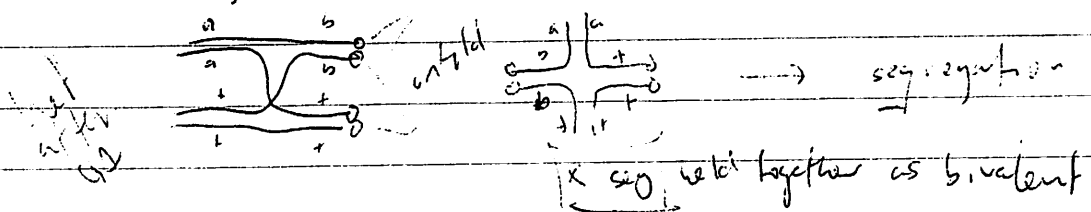 a b a a
a b b +
+ + b +
+ + + +
unfold
→ segregation
x seg held together as bivalent